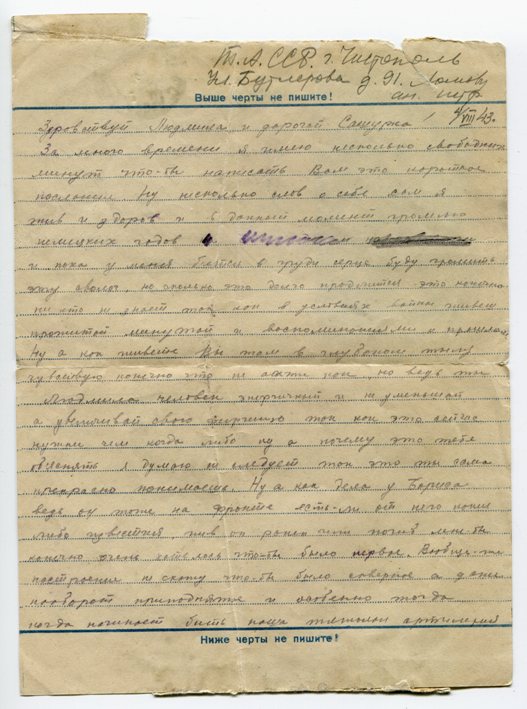 Т.А.ССР. г. Чистополь
Ул. Бутлерова д. 91. Ломову
Выше черты не пишите!
4/VIII 43.
Здравствуй Людмила и дорогой Сашурка!
За много времени я имею несколько свободных
минут что-бы написать Вам это короткое
послание. Ну несколько слов о себе сам я
жив и здоров и в данный момент громлю
немецких гадов
и пока у меня бьётся в груди серце буду громить
эту сволоч, но сколько это долго продлится это конечно
ни кто не знает так как в условиях войны живеш
прожитой минутой и воспоминаниями о прошлом
Ну а как живете Вы там в глубоком тылу
чувствую конечно что не ахти как, но ведь ты
Людмила человек энергичный и не уменьшай
а увеличивай свою энергию так как это сейчас
нужней чем когда либо ну а почему это тебе
обьяснять я думаю не следует так это ты сама
прекрасно понимаешь. Ну а как дела у Бориса
ведь он тоже на фронте есть-ли от него какие
либо известия жив он ранен или погиб мне-бы
конечно очень хотелось что-бы было первое. Вообще-то
настроение не скажу что-бы было скверное а даже
наоборот приподнятое и особенно тогда
когда начинает бить наша тяжелая артилерия
Ниже черты не пишите!